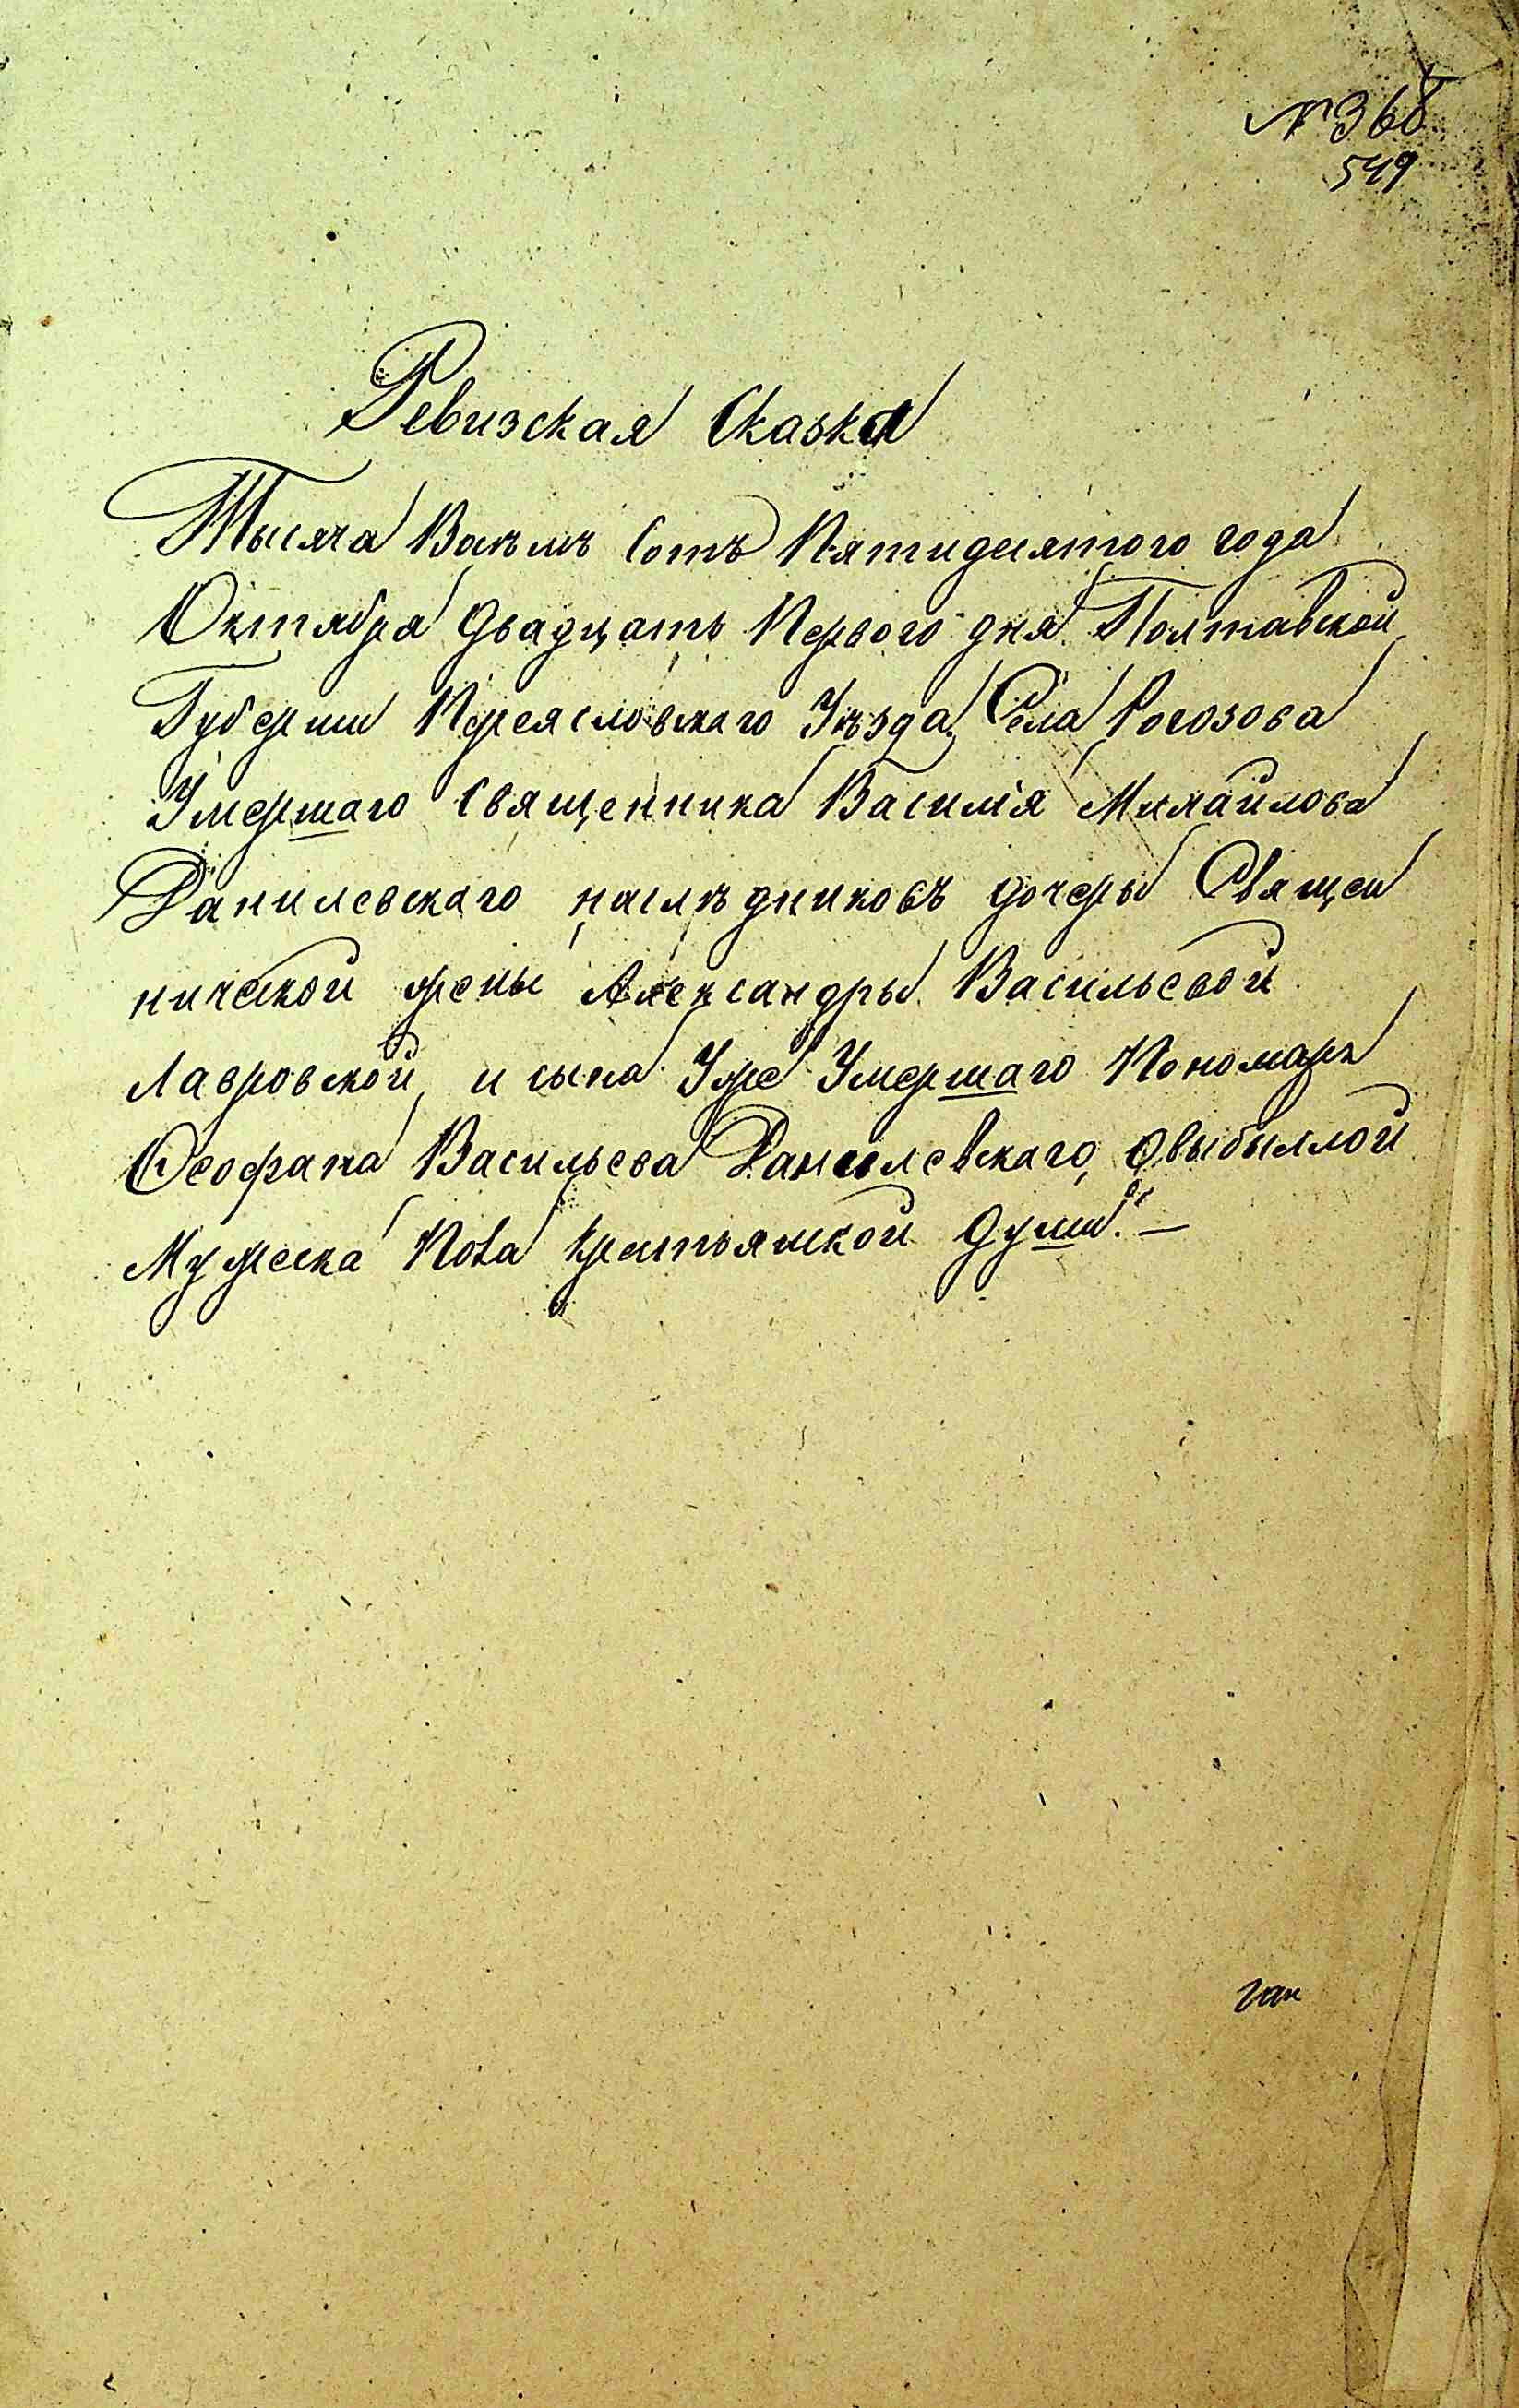 № 368
549
Ревизская Сказка
Тысяча Восѣмъ Сотъ Пятидесятого года
Октября двадцать Первого дня Полтавской
Губернии Переясловскаго Уѣзда, Села Рогозова
Умершаго Священника Василія Михайлова
Данилевскаго наслѣдниковъ дочеры Священ
нической жены Александры Васильевой
Лавровской, и сына Уже Умершаго Пономаря
Ѳеофана Васильева Данилевскаго, о выбылой
Мужеска Пола крестьянской души. —